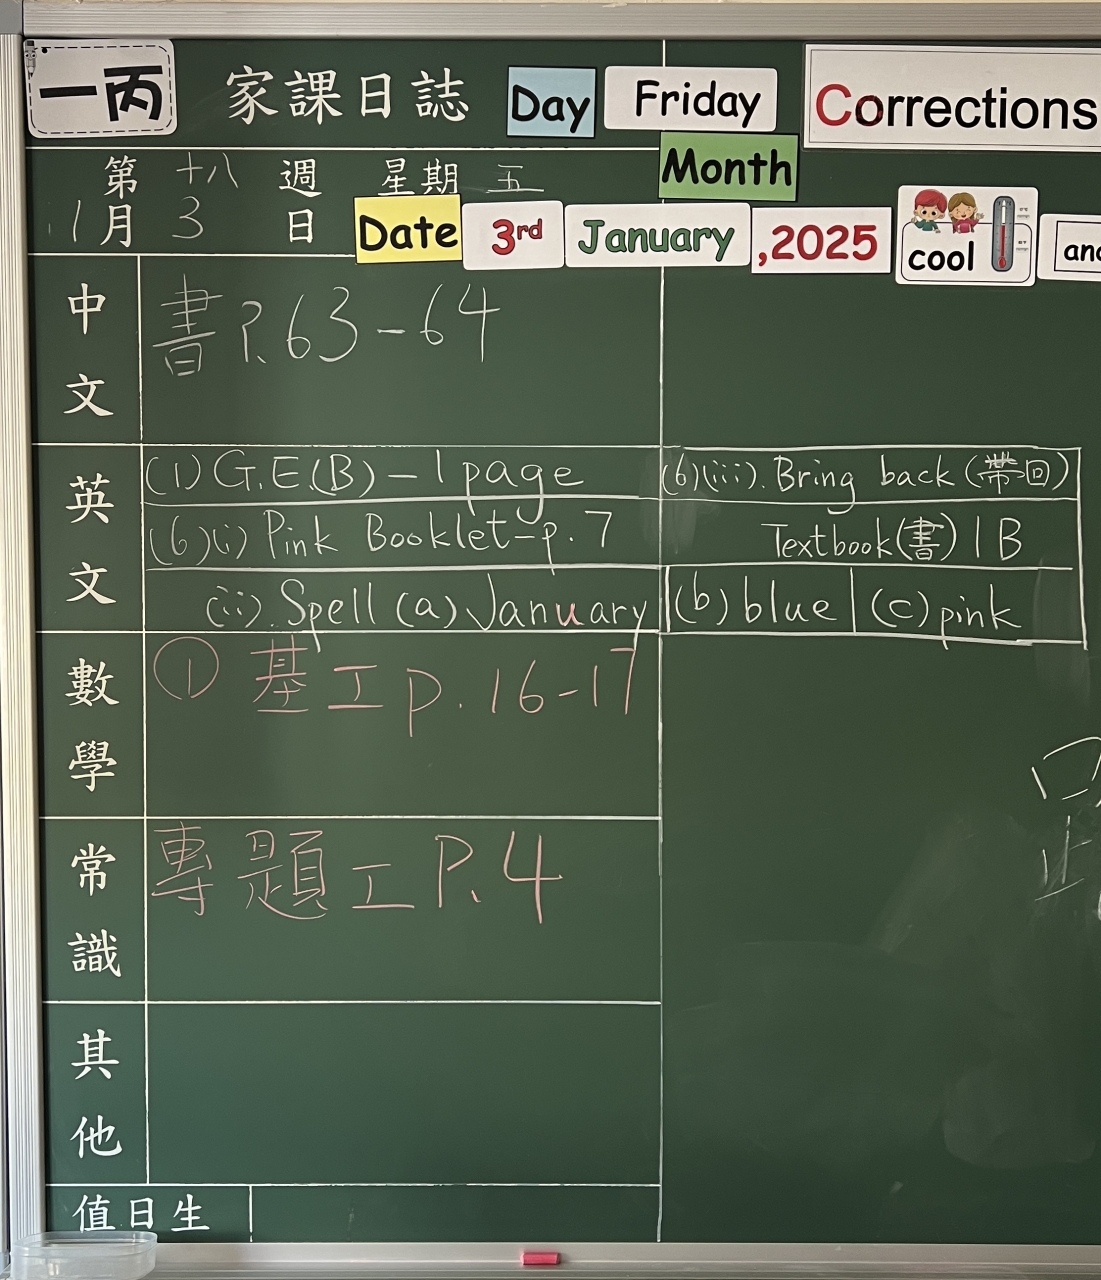 一丙 家課日誌 Day Friday Corrections
Month
第十八週 星期五
1月3日 Date 3rd January ,2025 cool
中文 書P.63-64
英文 (1) G.E.(B) - 1 page (6)(iii). Bring back (帶回)
(6)(i) Pink Booklet - p.7 Textbook (書) 1B
(ii). Spell (a) January (b) blue (c) pink
數學 ① 基工 p.16-17
常識 專題工 P.4
其他
值日生